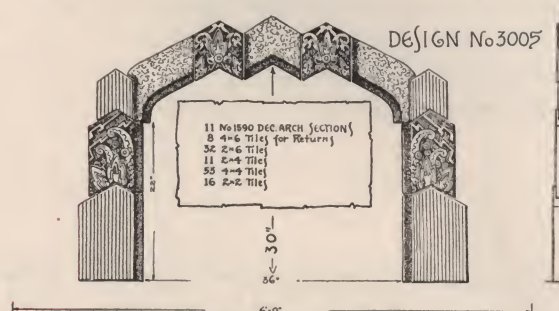 DESIGN No 3005
11 No 1590 DEC. ARCH SECTIONS
8 4×6 Tiles for Returns
32 2×6 Tiles
11 2×4 Tiles
53 4×4 Tiles
16 2×2 Tiles
30"
36"